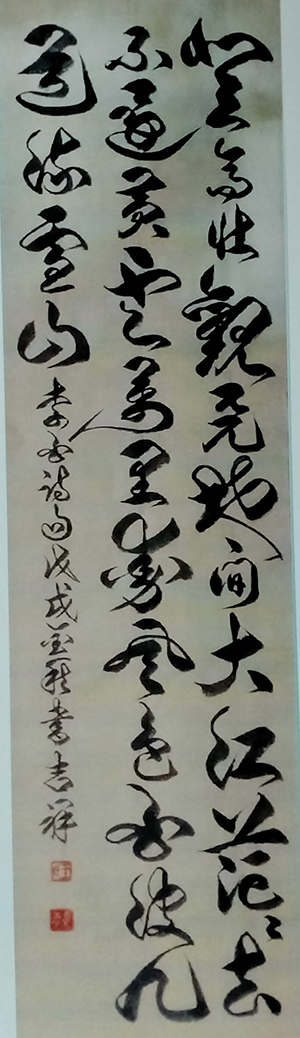 登高壯觀天地間大江茫〻去
不還黃雲萬里動風色白波九
道流雪山
李白詩句戊戌 書吉祥